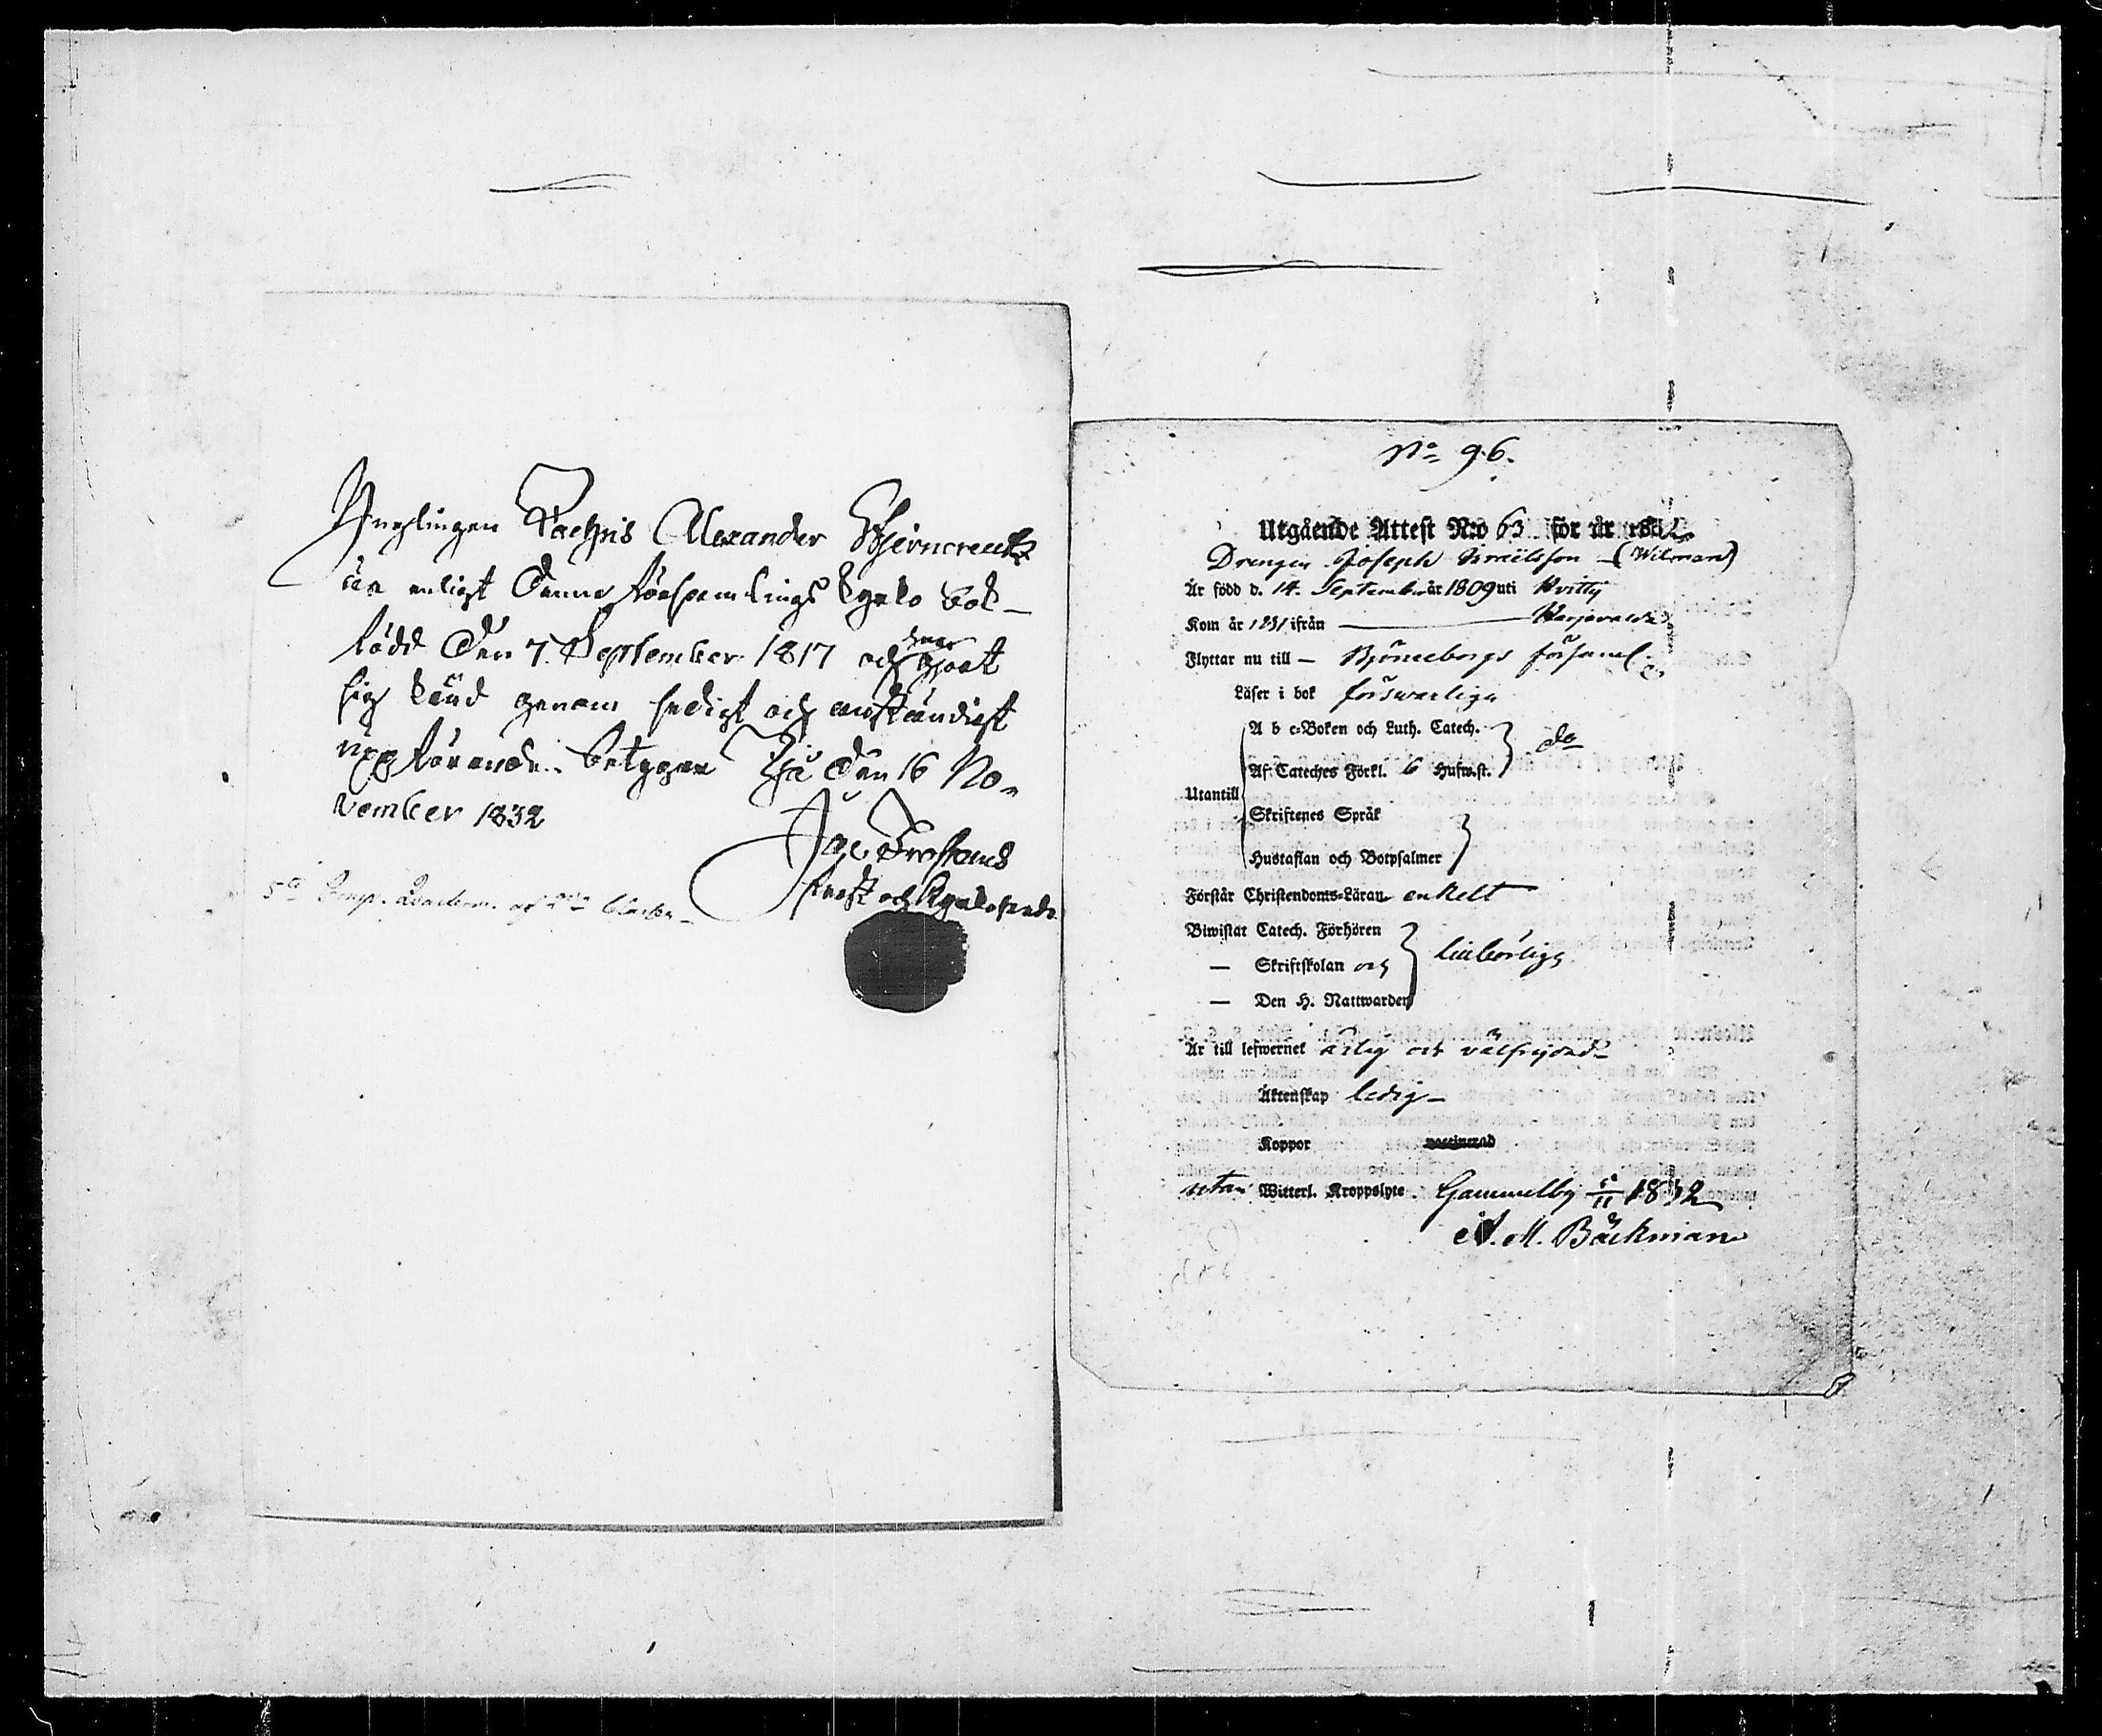 Ynglingen Alexander Stjerncreutz
är enligt denna församlings kyrko bok
född den 7 September 1817 och har gjort
sig känd genom sedigt och anständigt
uppförande. betygar den 16 No-
vember 1832
Prost och Kyrkoherde
No 96.
Utgående Attest N:o 63 för år 1832
Drengen Joseph Israelsson (Wilman)
Är född d. 14 September år 1809 uti
Kom år 1831 ifrån
Flyttar nu till — Björneborgs församl.
Läser i bok försvarliga
A b c-Boken och Luth. Catech. } do
Af Cateches Förkl. 6 Hufwst.
Utantill
Skriftenes Språk
Hustaflan och Botpsalmer
Förstår Christendoms-Läran enkelt
Biwistat Catech. Förhören
— Skriftskolan och
— Den H. Nattwarden
Är till lefwernet ärlig och välfrejdad
Äktenskap ledig
Koppor vaccinerad
utan Witterl. Kroppslyte. Gammelby 1832
Bäckman